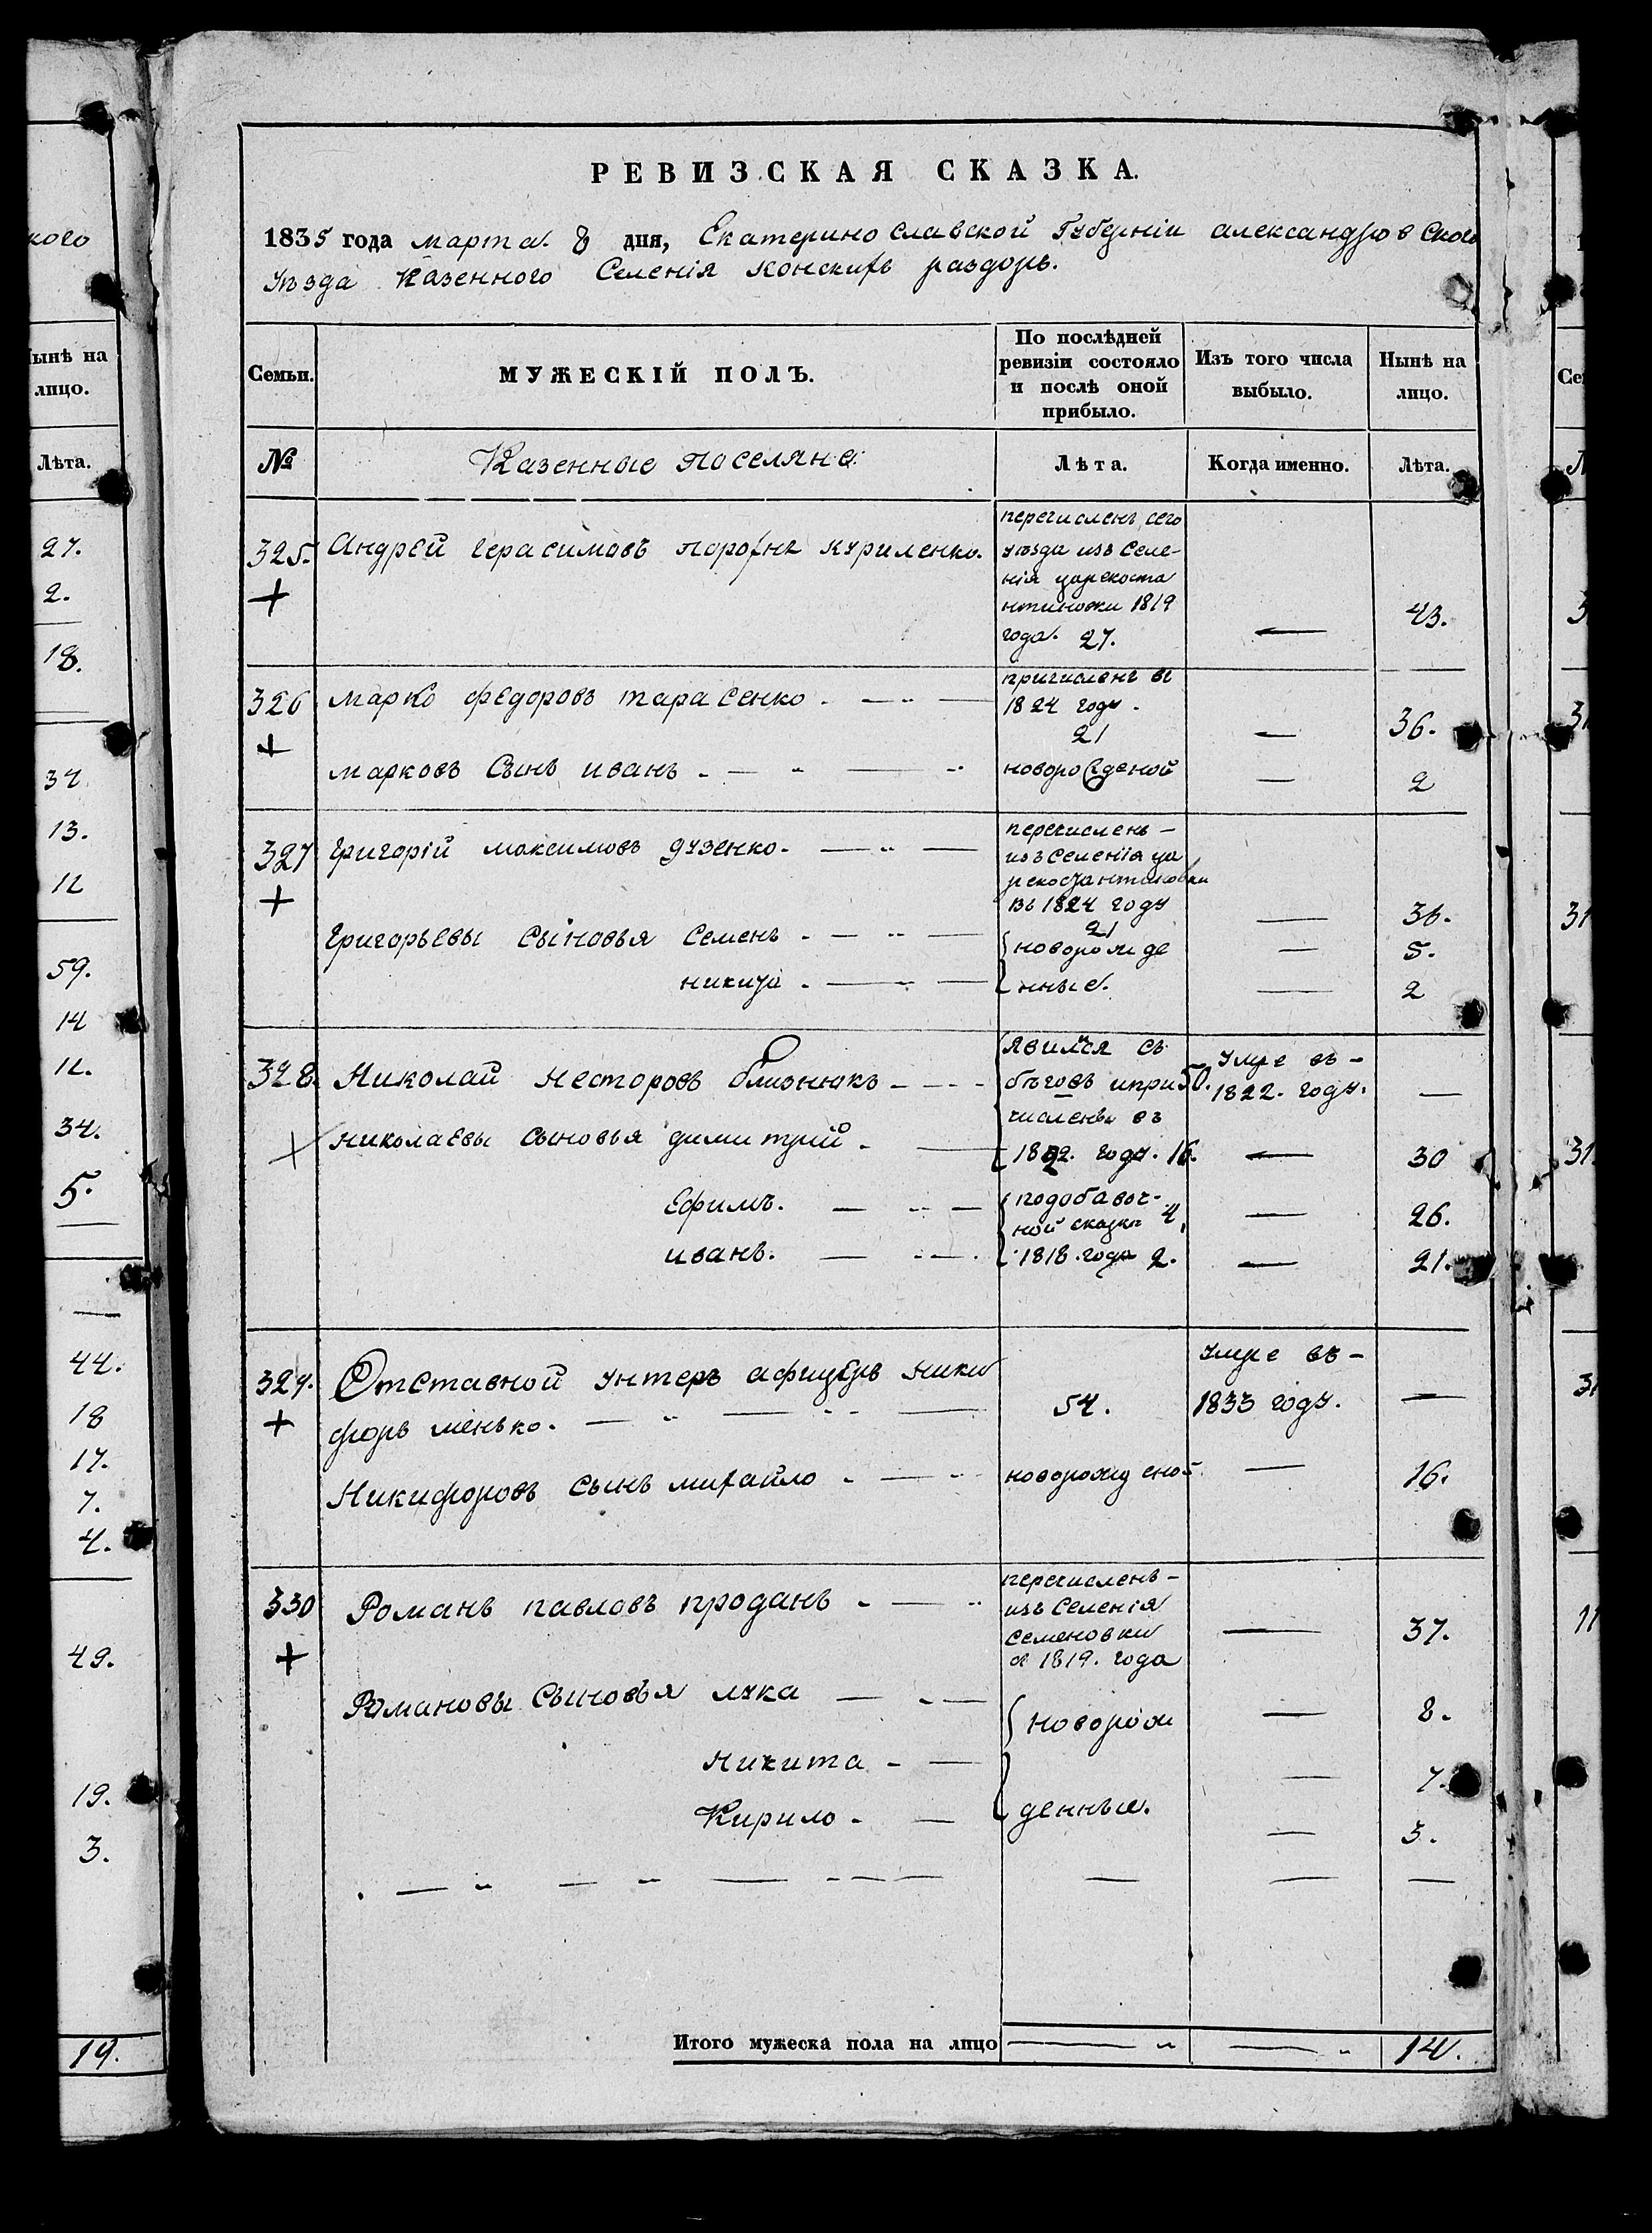 кого
Нынѣ на
лицо.
Лѣта.
27.
2.
18.
34
13.
12
59.
14
12.
34.
5.
44.
18
17.
7.
4.
49.
19.
3.
19.
РЕВИЗСКАЯ СКАЗКА.
1835 года марта 8 дня, Екатеринославской Губерніи александровского
Уѣзда Казенного Селенія Конскихъ раздоръ.
Семьи.
МУЖЕСКІЙ ПОЛЪ.
По послѣдней
ревизіи состояло
и послѣ оной
прибыло.
Изъ того числа
выбыло.
Нынѣ на
лицо.
№
Казенные поселяне:
Лѣта.
Когда именно.
Лѣта.
325. Андрей Герасимовъ порохня куриленко.
+
перечисленъ сего
уѣзда изъ Селе-
нія царекоста
нтиновки 1819
года. 27. — 43.
326 марко федоровъ тарасенко.
+
причисленъ въ
1824 году.
21 — 36.
марковъ Сынъ иванъ. новорожденой — 2
327 григорій максимовъ дузенко.
+
перечисленъ —
изъ Селенія ца
рекостантиновки
въ 1824 году
21 — 36.
Григорьевы сыновья Семенъ { новорожде — 5.
никита { нные. — 2
328. Николай несторовъ близнюкъ
явился съ
бѣговъ и при 50.
численъ въ
Умре въ —
1822. году. —
+ николаевы сыновья димитрій 1822. году. 16. — 30
Ефимъ. { подобавоч-
ной сказки 4. — 26.
иванъ. 1818. года 2. — 21.
329. Отставной унтеръ афицеръ ники
+ форъ менько.
54.
Умре въ —
1833 году. —
Никифоровъ сынъ михайло новорожденой — 16.
330 Романъ павловъ проданъ
+
перечисленъ —
изъ Селенія
Семеновки
с 1819. года — 37.
Романовы Сыновья лука { новорож — 8.
никита — 7.
Кирило { денные. — 3.
Итого мужеска пола на лицо 14.